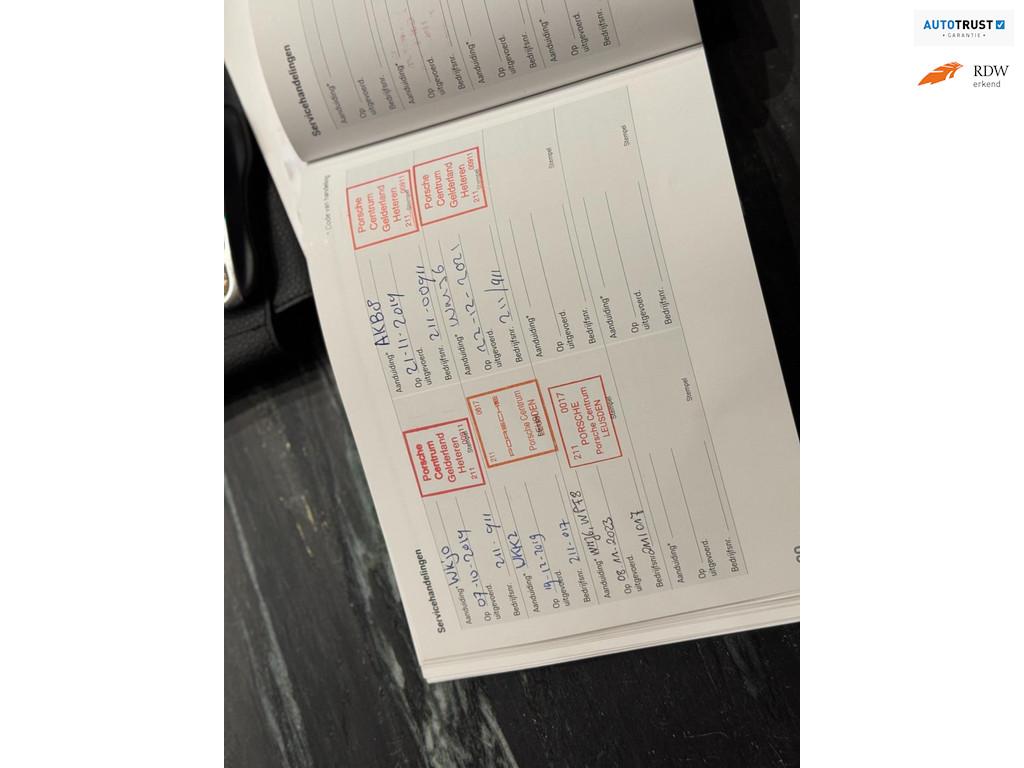 AUTOTRUST
• GARANTIE •
RDW
erkend
Servicehandelingen
Aanduiding*
Op
uitgevoerd.
Bedrijfsnr.
Aanduiding*
Op
uitgevoerd.
Bedrijfsnr.
Aanduiding*
Op
uitgevoerd.
Bedrijfsnr.
Aanduiding*
Op
uitgevoerd.
Bedrijfsnr.
* Code van handeling
Servicehandelingen
Aanduiding* WKJ0
Op 07-10-2019
uitgevoerd.
Bedrijfsnr. 211-911
Porsche
Centrum
Gelderland
Heteren
211 00911
Stempel
Aanduiding*
Op 19-12-2019
uitgevoerd.
Bedrijfsnr. 211-017
211 0017
PORSCHE
Porsche Centrum
LEUSDEN
Aanduiding*
Op 08-11-2023
uitgevoerd.
Bedrijfsnr. 211017
211 0017
PORSCHE
Porsche Centrum
LEUSDEN
Stempel
Aanduiding*
Op
uitgevoerd.
Bedrijfsnr.
Stempel
Aanduiding* AKB8
Op 21-11-2019
uitgevoerd.
Bedrijfsnr. 211-00911
Porsche
Centrum
Gelderland
Heteren
211 00911
Stempel
Aanduiding*
Op 22-12-2021
uitgevoerd.
Bedrijfsnr. 211/911
Porsche
Centrum
Gelderland
Heteren
211 00911
Stempel
Aanduiding*
Op
uitgevoerd.
Bedrijfsnr.
Stempel
Aanduiding*
Op
uitgevoerd.
Bedrijfsnr.
Stempel